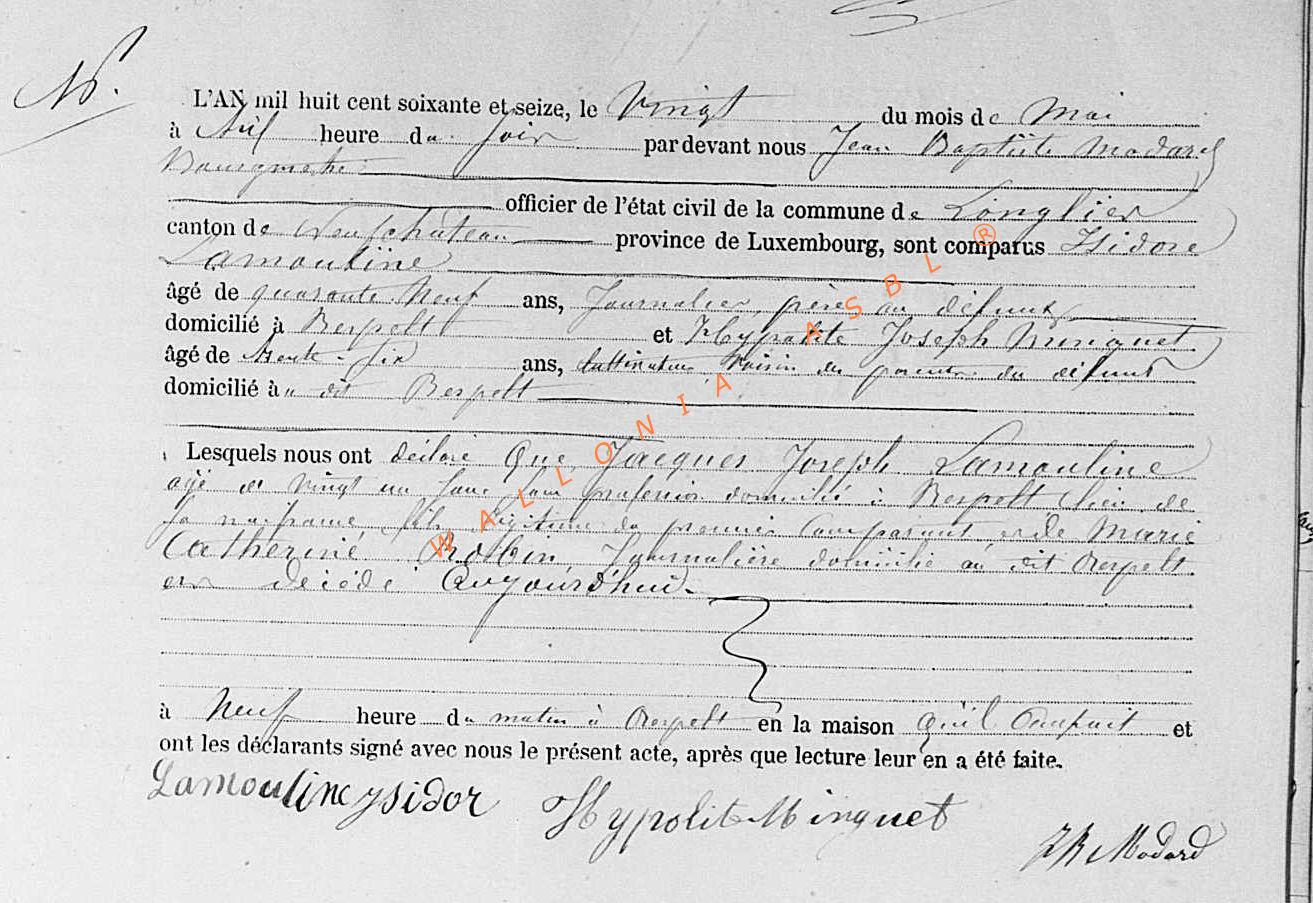 16.
L'AN mil huit cent soixante et seize, le Vingt du mois de Mai
à heure du soir par devant nous Jean Baptiste Modard
Bourgmestre
officier de l'état civil de la commune de Longlier
canton de Neufchâteau province de Luxembourg, sont comparus Isidore
Lamouline
âgé de quarante Neuf ans, Journalier, père au défunt
domicilié à Respelt et Hypolite Joseph Minguet
âgé de trente-six ans, cultivateur voisin du défunt
domicilié à dit Respelt
Lesquels nous ont déclaré Que Jacques Joseph Lamouline
agé de vingt un sans profession domicilié à Respelt lieu de
sa naissance fils légitime du premier Comparant et de Marie
Catherine Robin Journalière domicilié au dit Respelt
est décédé Aujourd'hui.
à Neuf heure du matin à Respelt en la maison qu'il Occupait et
ont les déclarants signé avec nous le présent acte, après que lecture leur en a été faite.
Lamouline ysidor Hypolit Minguet
JB Modard
WALLONIA ASBL ®